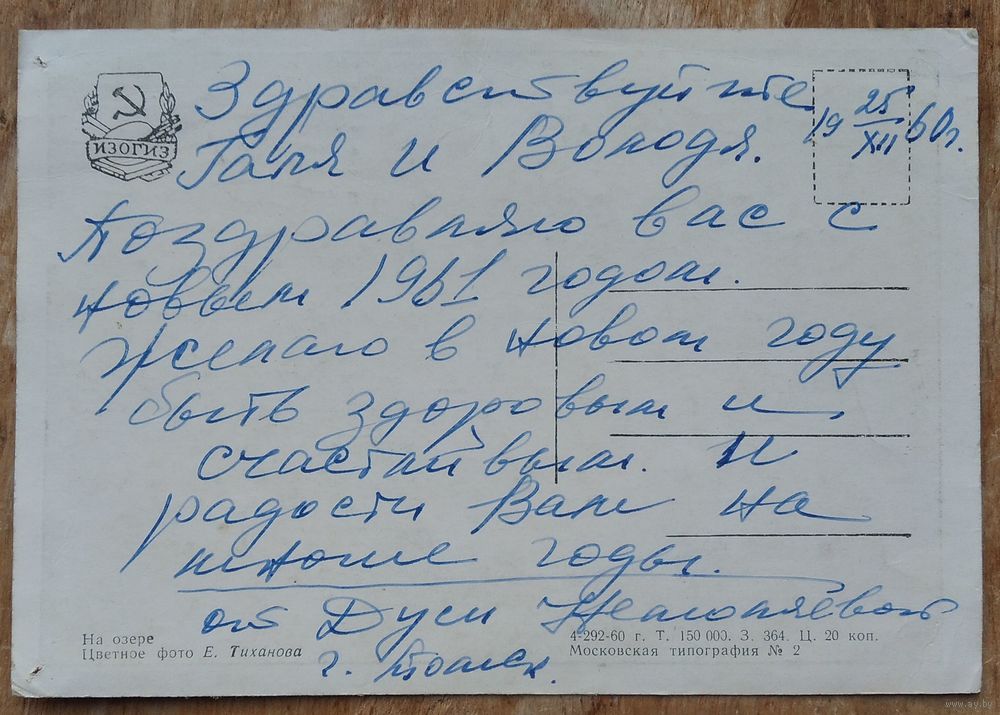 ИЗОГИЗ
Здравствуйте
19 25/XII 60 г.
Галя и Володя.
Поздравляю вас с
новым 1961 годом.
Желаю в новом году
быть здоровым и
счастливым. И
радости Вам на
многие годы.
от Дуси
г. Томск.
На озере
Цветное фото Е. Тиханова
4-292-60 г. Т. 150 000. З. 364. Ц. 20 коп.
Московская типография № 2
www.ay.by